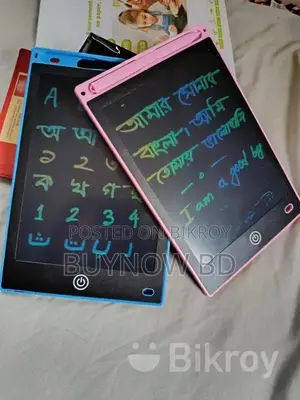 A
অ আ
১ ২ ৩
ক খ গ
1 2 3 4
ث ت ب ا
আমার সোনার
বাংলা, আমি
তোমায় ভালোবাসি
I am a good boy
POSTED ON BIKROY
BUYNOW BD
Bikroy